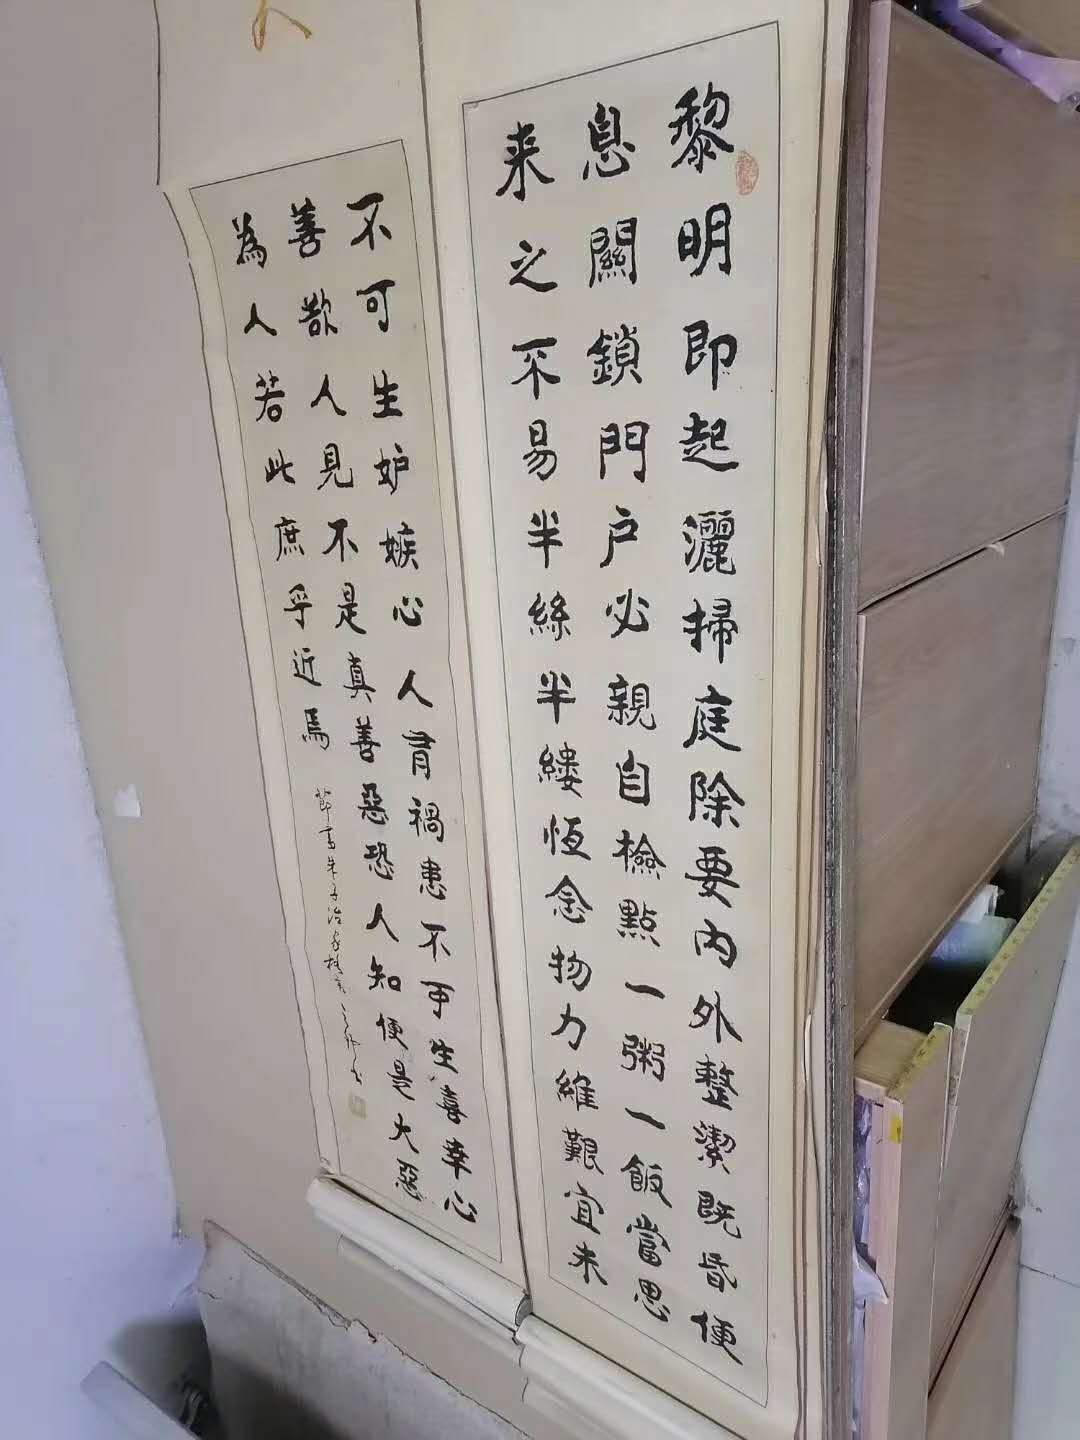 黎明即起灑掃庭除要内外整潔既昏便
息關鎖門户必親自檢點一粥一飯當思
来之不易半絲半縷恆念物力維艱宜未
不可生妒嫉心人有禍患不可生喜幸心
善欲人見不是真善惡恐人知便是大惡
為人若此庶乎近焉
節書朱子治家格言